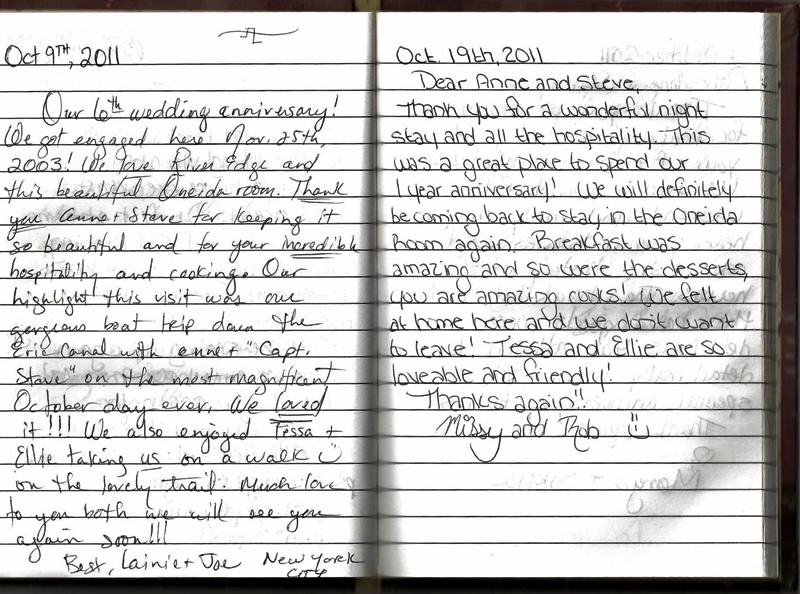 Oct 9TH, 2011
Our 6th wedding anniversary!
We got engaged here Nov. 25th,
2003! We love River Edge and
this beautiful Oneida room. Thank
you Anne + Steve for keeping it
so beautiful and for your incredible
hospitality and cooking. Our
highlight this visit was our
gorgeous boat trip down the
Erie Canal with Anne + "Capt.
Steve" on the most magnificent
October day ever. We loved
it!!! We also enjoyed Tessa +
Ellie taking us on a walk
on the lovely trail. Much love
to you both we will see you
again soon!!!
Best, Lainie + Joe New York
CITY
Oct. 19th, 2011
Dear Anne and Steve,
Thank you for a wonderful night
stay and all the hospitality. This
was a great place to spend our
1 year anniversary! We will definitely
be coming back to stay in the Oneida
Room again. Breakfast was
amazing and so were the desserts,
you are amazing cooks! We felt
at home here and we don't want
to leave! Tessa and Ellie are so
loveable and friendly!
Thanks again!!
Missy and Rob